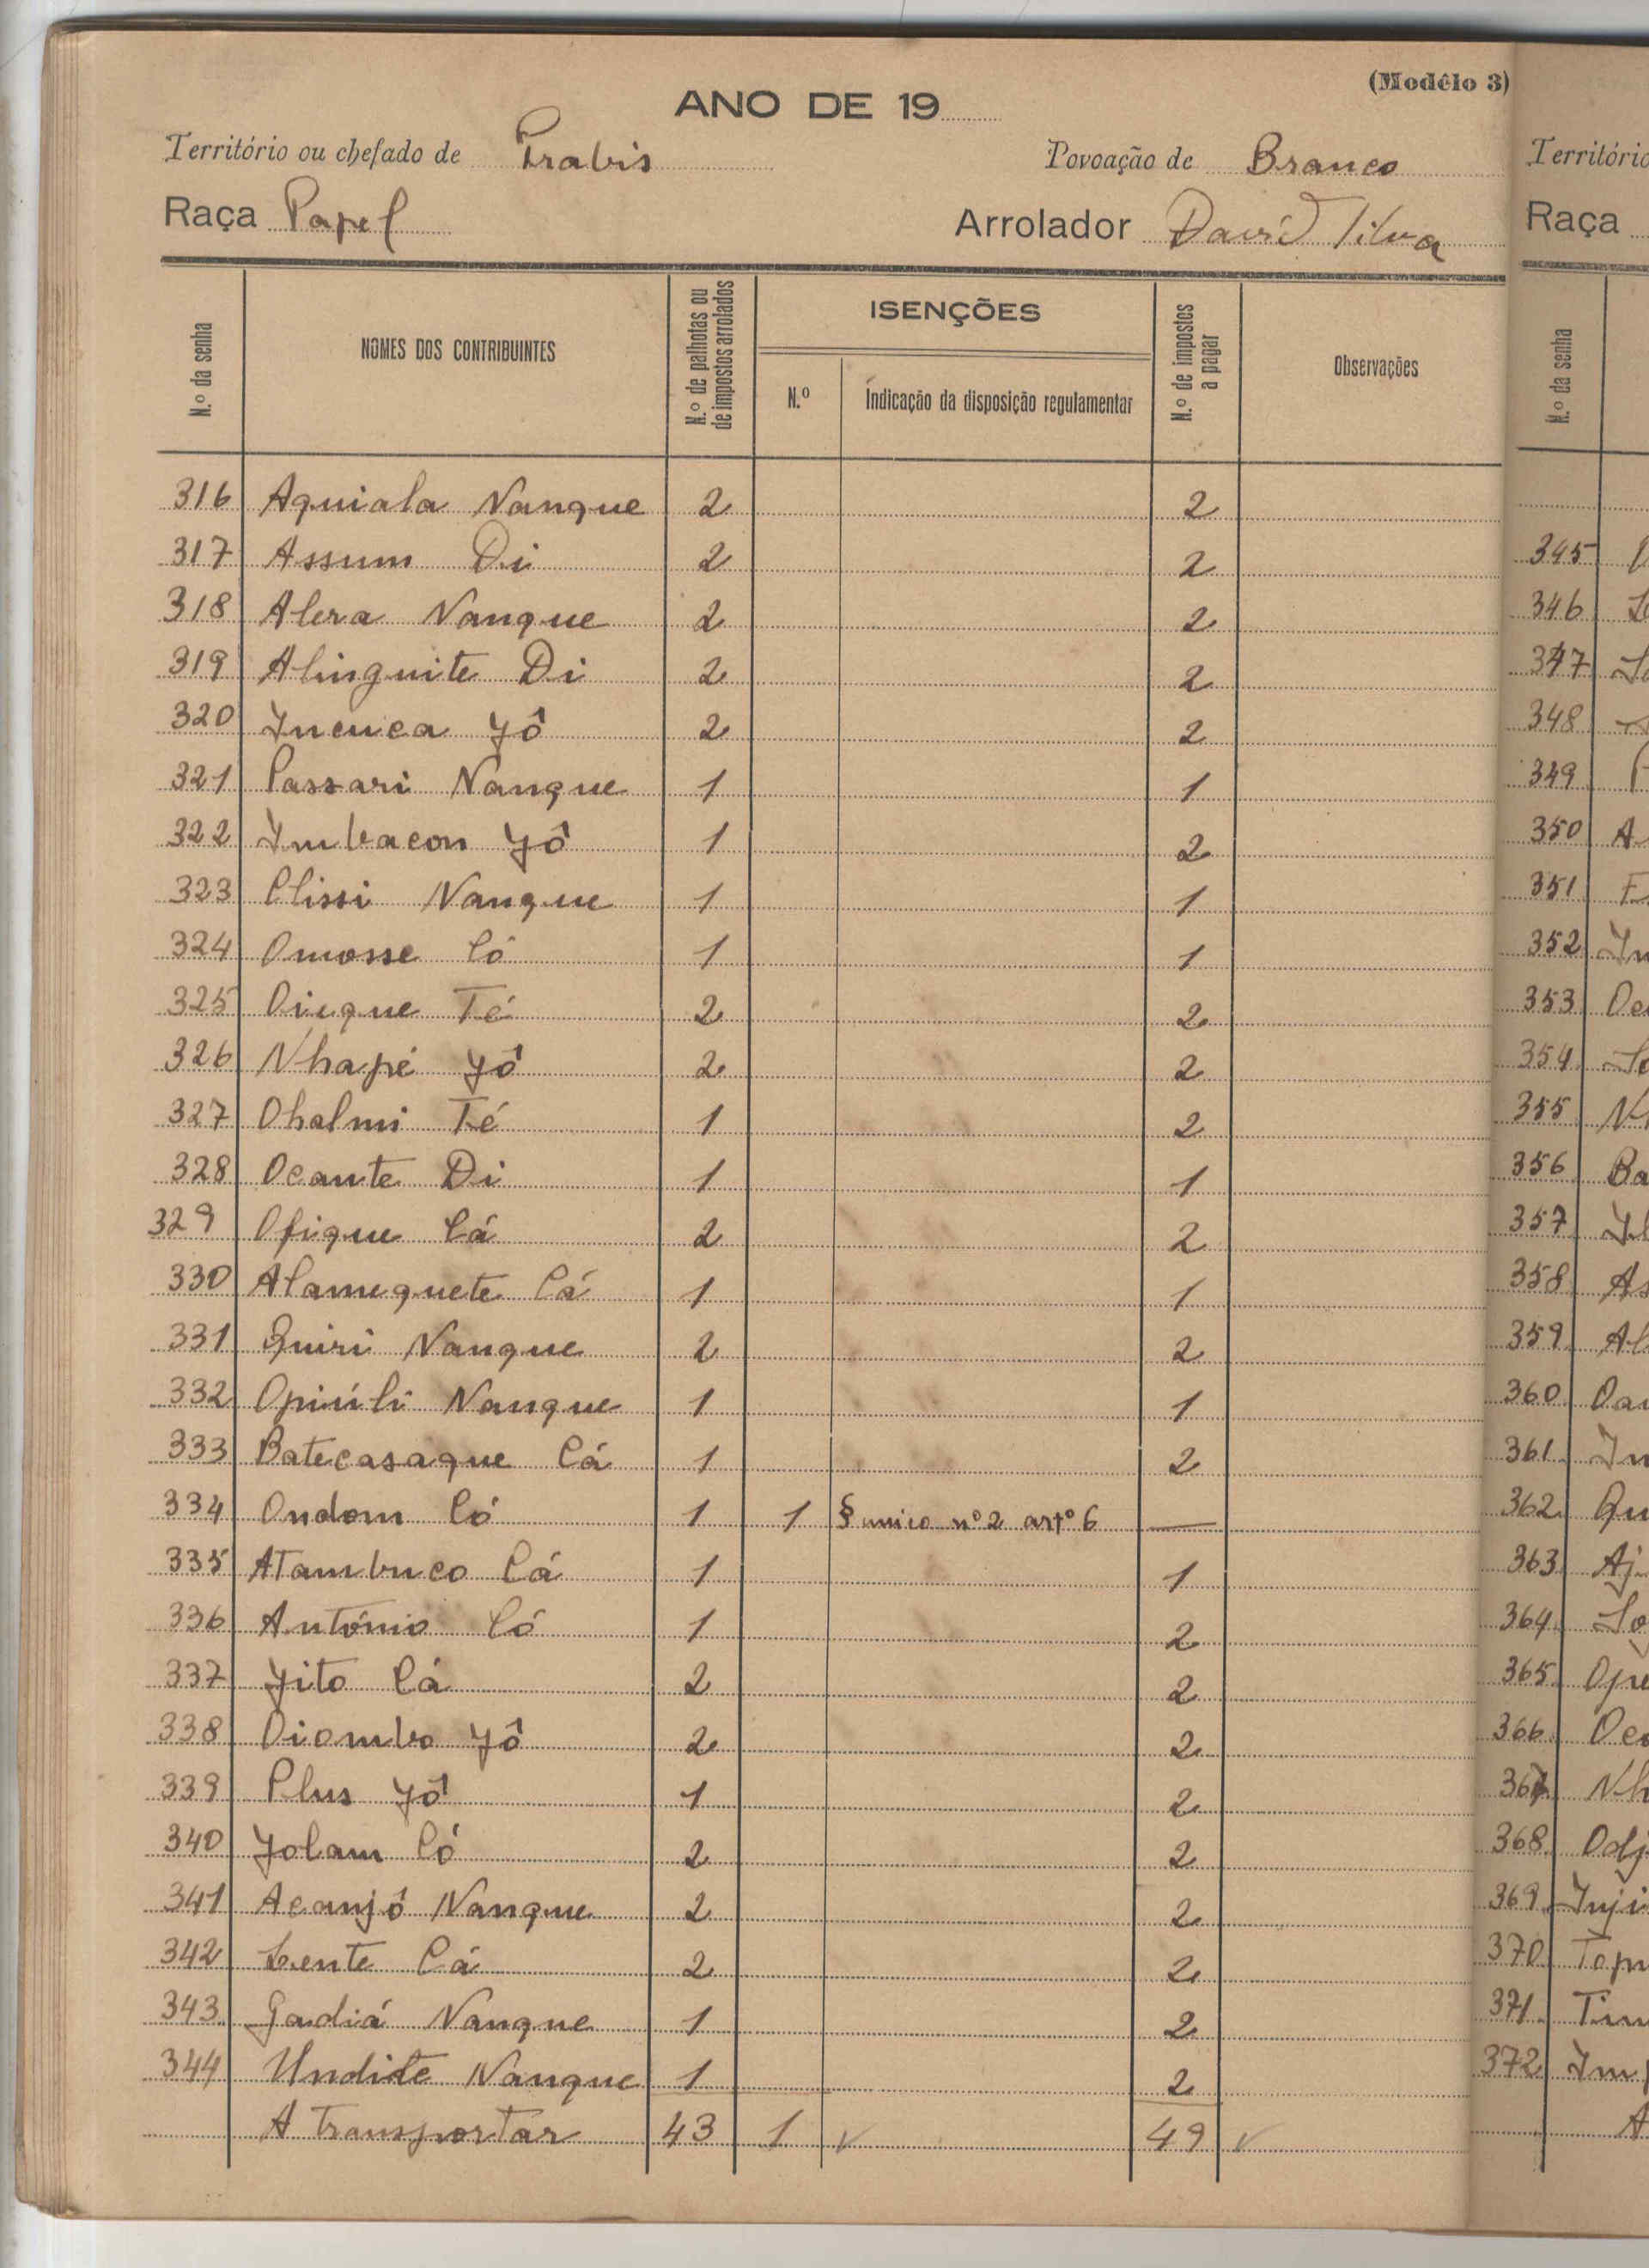 (Modêlo 3)
ANO DE 19
Território ou chefado de Prabis Povoação de Branco
Raça Papel Arrolador David Silva
N.º da senha NOMES DOS CONTRIBUINTES N.º de palhotas ou de impostos arrolados ISENÇÕES N.º Indicação da disposição regulamentar N.º de impostos a pagar Observações
316 Aquiala Nanque 2 2
317 Assum Di 2 2
318 Alera Nanque 2 2
319 Alinguite Di 2 2
320 Incuca Yô 2 2
321 Passari Nanque 1 1
322 Imbacon Yô 1 2
323 Clissi Nanque 1 1
324 Omosse Có 1 1
325 Dieque Té 2 2
326 Nhapé Yô 2 2
327 Ohalmi Té 1 2
328 Ocante Di 1 1
329 Ofique Cá 2 2
330 Alamequete Cá 1 1
331 Quiri Nanque 2 2
332 Opiúli Nanque 1 1
333 Batecasaque Cá 1 2
334 Ondom Có 1 1 § unico nº 2 artº 6 —
335 Atambuco Cá 1 1
336 António Có 1 2
337 Yito Cá 2 2
338 Diombo Yô 2 2
339 Plus Yô 1 2
340 Yolam Có 2 2
341 Acanjô Nanque 2 2
342 Lente Cá 2 2
343 Gadiá Nanque 1 2
344 Undite Nanque 1 2
A transportar 43 1 49
Território
Raça
N.º da senha
345
346
347
348
349
350 A
351
352
353
354
355
356 Ba
357
358 As
359 Al
360
361
362 Qu
363 Aj
364
365
366
367 Nh
368 Odj
369 Inji
370
371
372
A